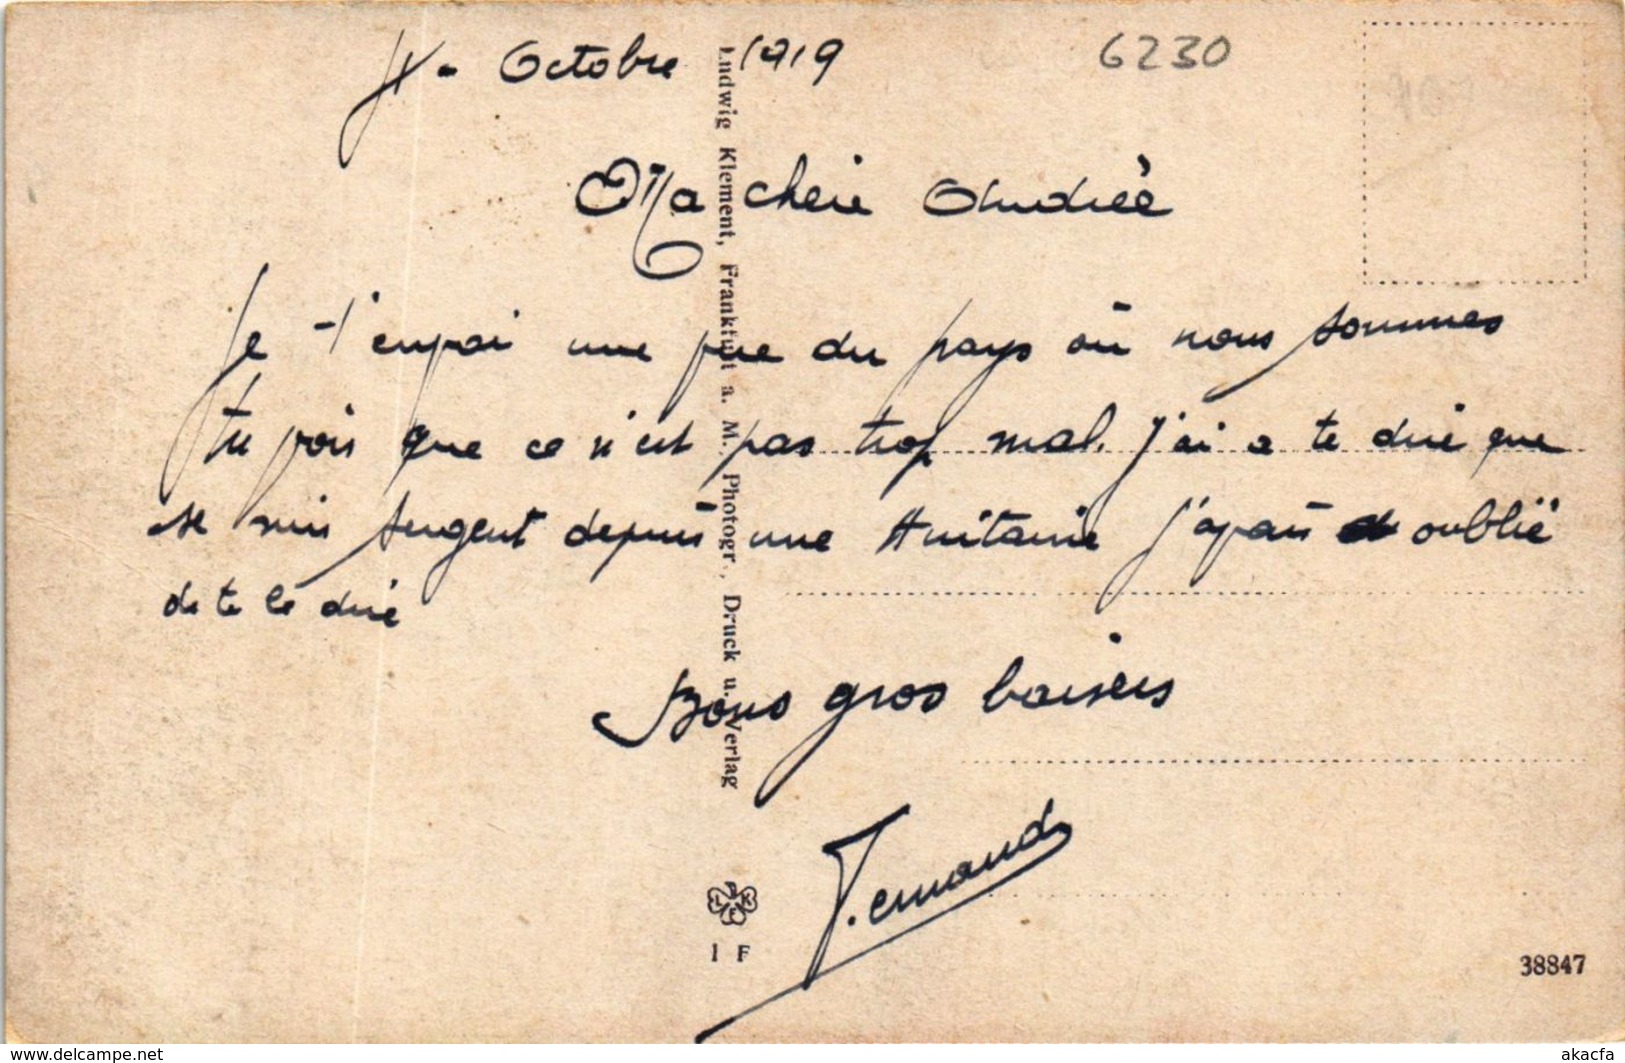 Octobre 1919
6230
Ma cherie Andrée
Je t'envoi une vue du pays où nous sommes
tu vois que ce n'est pas trop mal. J'ai a te dire que
je suis sergent depuis une huitaine j'avais oublié
de te le dire
Bons gros baisers
Fernand
Ludwig Klement, Frankfurt a. M., Photogr., Druck u. Verlag
1 F
38847
www.delcampe.net
akacfa